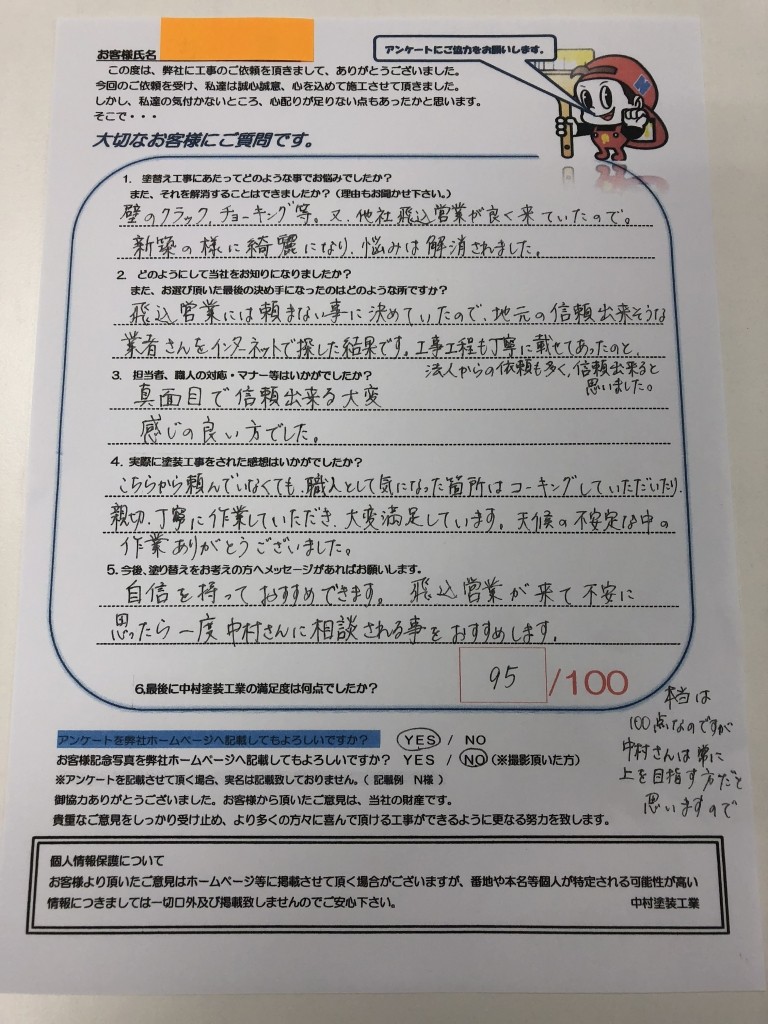 お客様氏名
アンケートにご協力をお願いします。
この度は、弊社に工事のご依頼を頂きまして、ありがとうございました。
今回のご依頼を受け、私達は誠心誠意、心を込めて施工させて頂きました。
しかし、私達の気付かないところ、心配りが足りない点もあったかと思います。
そこで・・・
大切なお客様にご質問です。
1. 塗替え工事にあたってどのような事でお悩みでしたか?
また、それを解消することはできましたか?(理由もお聞かせ下さい。)
壁のクラック、チョーキング等。又、他社飛込営業が良く来ていたので。
新築の様に綺麗になり、悩みは解消されました。
2. どのようにして当社をお知りになりましたか?
また、お選び頂いた最後の決め手になったのはどのような所ですか?
飛込営業には頼まない事に決めていたので、地元の信頼出来そうな
業者さんをインターネットで探した結果です。工事工程も丁寧に載せてあったのと、
法人からの依頼も多く、信頼出来ると
思いました。
3. 担当者、職人の対応・マナー等はいかがでしたか?
真面目で信頼出来る大変
感じの良い方でした。
4. 実際に塗装工事をされた感想はいかがでしたか?
こちらから頼んでいなくても、職人として気になった箇所はコーキングしていただいたり、
親切、丁寧に作業していただき、大変満足しています。天候の不安定な中の
作業ありがとうございました。
5. 今後、塗り替えをお考えの方へメッセージがあればお願いします。
自信を持っておすすめできます。 飛込営業が来て不安に
思ったら一度中村さんに相談される事をおすすめします。
6.最後に中村塗装工業の満足度は何点でしたか?
95/100
本当は
100点なのですが
中村さんは常に
上を目指す方だと
思いますので
アンケートを弊社ホームページへ記載してもよろしいですか? YES / NO
お客様記念写真を弊社ホームページへ記載してもよろしいですか? YES / NO (※撮影頂いた方)
※アンケートを記載させて頂く場合、実名は記載致しておりません。( 記載例 N様 )
御協力ありがとうございました。お客様から頂いたご意見は、当社の財産です。
貴重なご意見をしっかり受け止め、より多くの方々に喜んで頂ける工事ができるように更なる努力を致します。
個人情報保護について
お客様より頂いたご意見はホームページ等に掲載させて頂く場合がございますが、番地や本名等個人が特定される可能性が高い
情報につきましては一切口外及び掲載致しませんのでご安心下さい。
中村塗装工業